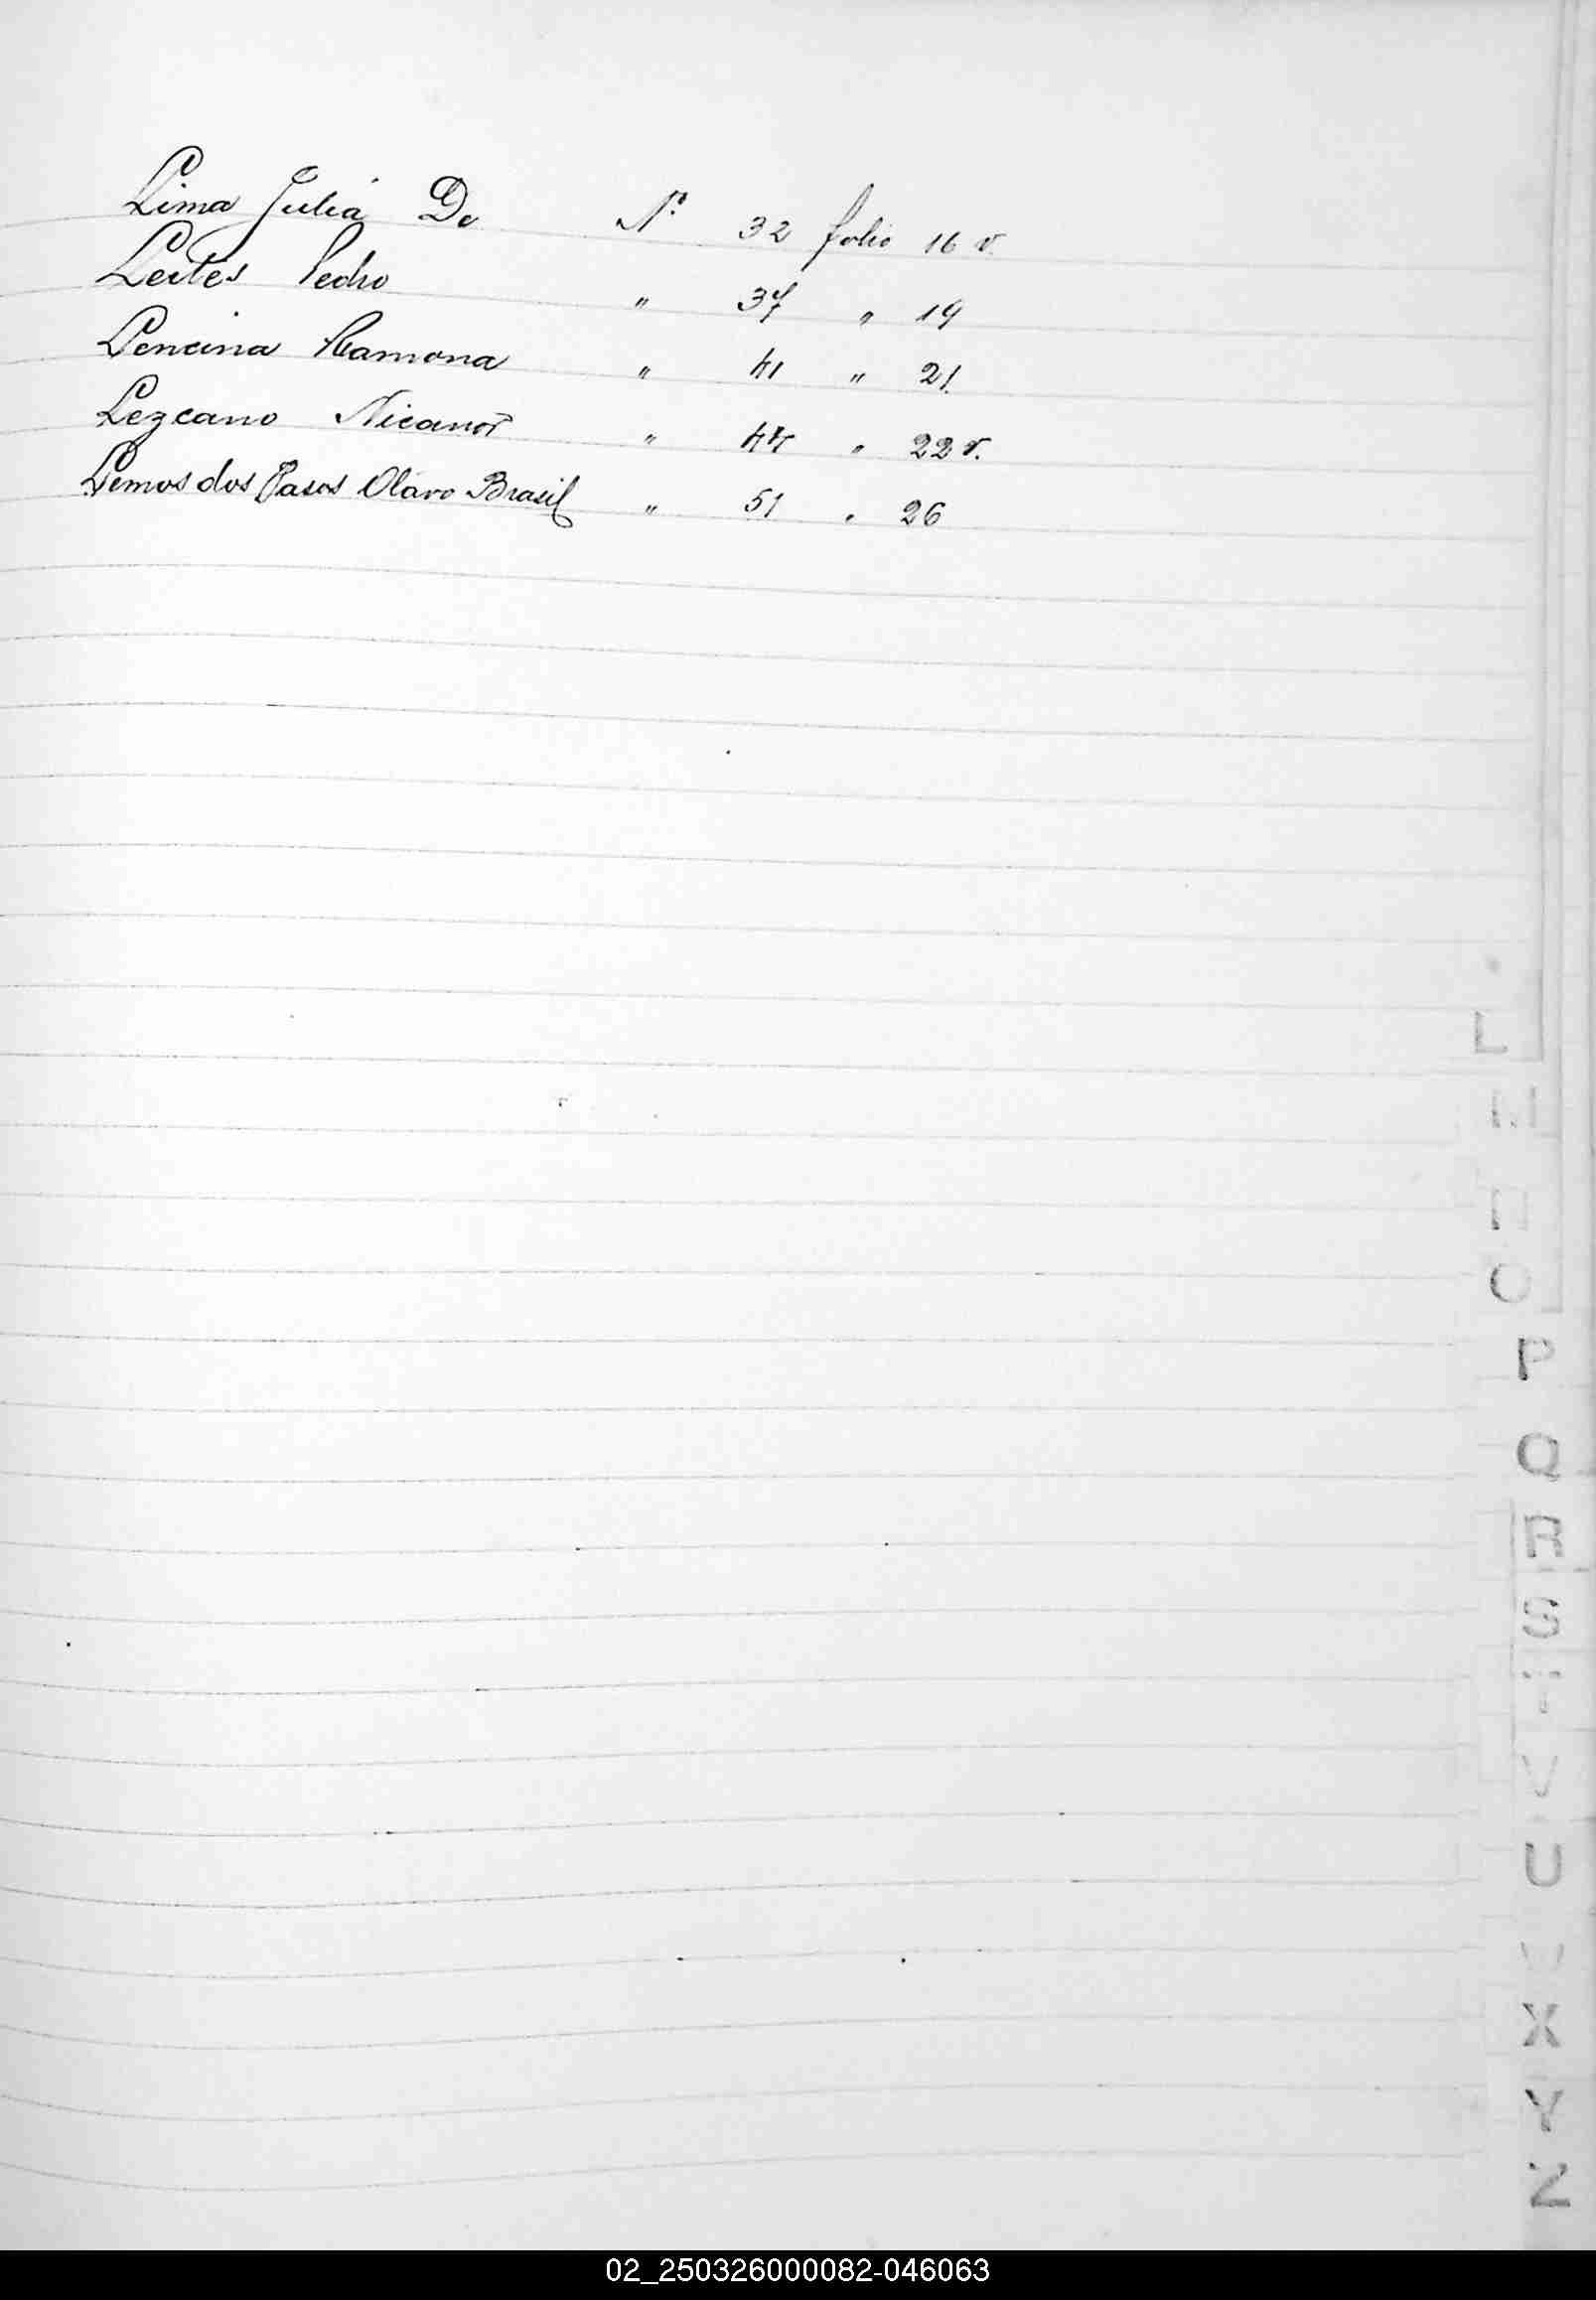 Lima Julia De Nº 32 folio 16 v.
Leites Pedro " 37 " 19
Lencina Ramona " 41 " 21.
Lezcano Nicanor " 44 " 22 v.
Lemos dos Pasos Olavo Brasil " 51 " 26
L
M
N
O
P
Q
R
S
T
V
U
X
Y
Z
02_250326000082-046063